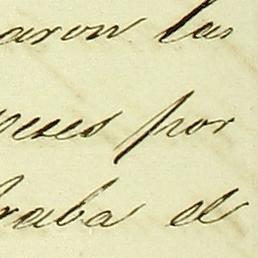 aron las
veses por
raba el